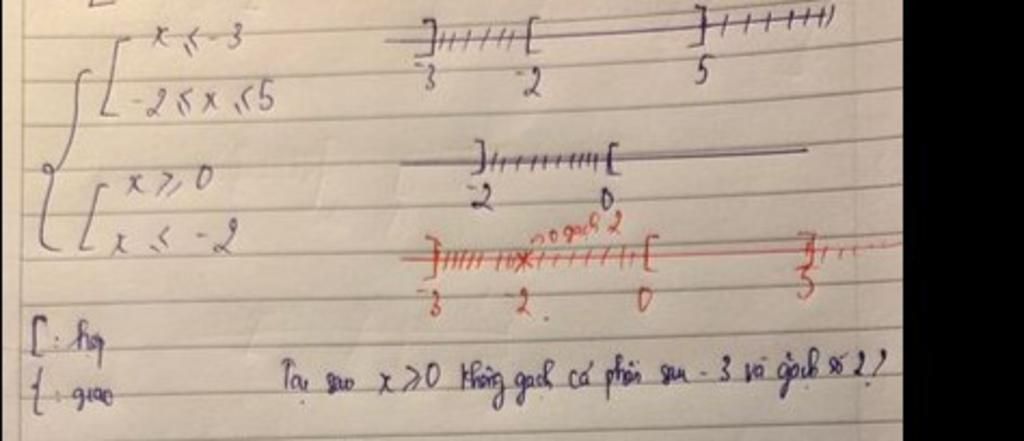 x ≤ -3
-2 ≤ x ≤ 5
-3 -2 5
x ≥ 0
x ≤ -2
-2 0
gạch 2
-3 -2 0 5
[ : hợp
{ : giao
Tại sao x ≥ 0 không gạch cả phần sau -3 và gạch số 2?